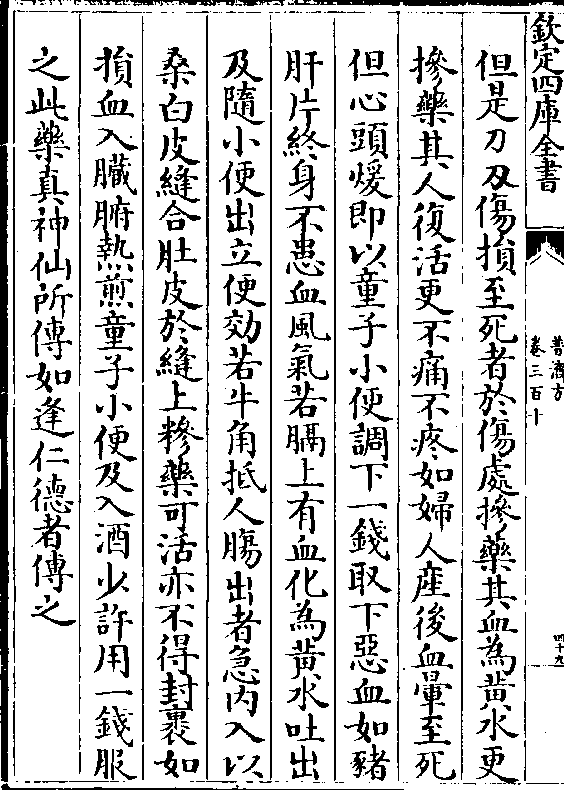 欽定四庫全書
普濟方
卷三百十
四十九
但是刀刃傷損至死者於傷處摻藥其血為黄水更
摻藥其人復活更不痛不疼如婦人産後血暈至死
但心頭煖即以童子小便調下一錢取下惡血如豬
肝片終身不患血風氣若膈上有血化為黄水吐出
及隨小便出立便効若牛角抵人膓出者急内入以
桑白皮縫合肚皮於縫上糝藥可活亦不得封裹如
損血入臟腑熱煎童子小便及入酒少許用一錢服
之此藥真神仙所傳如逢仁德者傳之